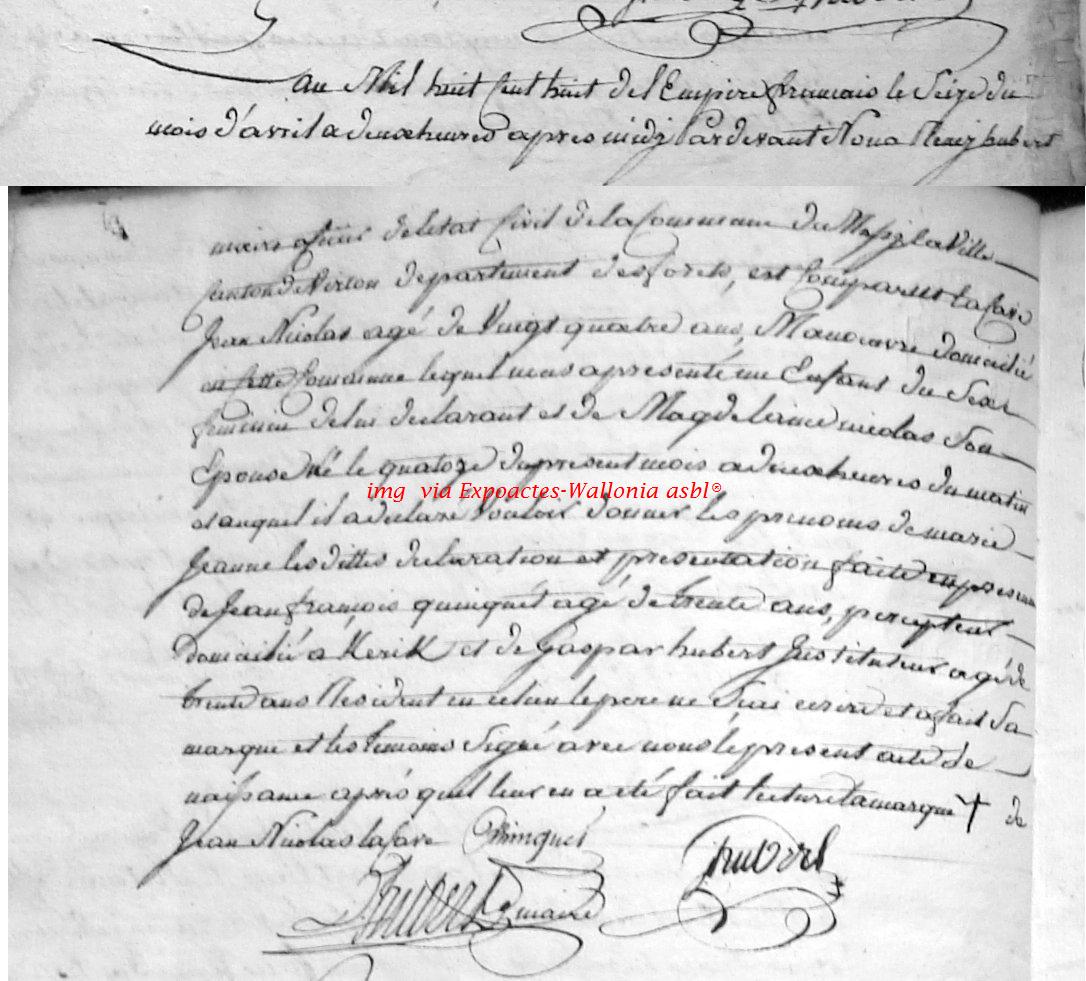 au Mil huit Cent huit de l'Empire francais le Seize du
mois d'avril a deux heures apres midy Pardevant Nous hubert
maire officier de letat Civil de la Commune de la Ville
Canton de Virton departement des forets, est Comparut Lafare
Jean Nicolas agé de Vingt quatre ans, Manoeuvre domicilié
en Cette Commune lequel nous a presenté un Enfant du Sexe
feminin de lui declarant et de Magdelaine nicolas Son
Epouse Né le quatoze du present mois a deux heures du matin
et auquel il a declaré Vouloir donner les prenoms de marie
Jeanne les dittes declaration et presentation faite en presence
de Jean françois quinquet agé de trente ans, percepteur
Domicilié a et de Gaspar hubert Instituteur agé de
trente ans Resident en ce lieu le pere ne Scais ecrire et a fait Sa
marque et les temoins Signé avec nous le present acte de
naissance après quil leur en a eté fait lecture la marque † de
Jean Nicolas lafare Quinquet
hubert
hubert maire
img via Expoactes-Wallonia asbl®